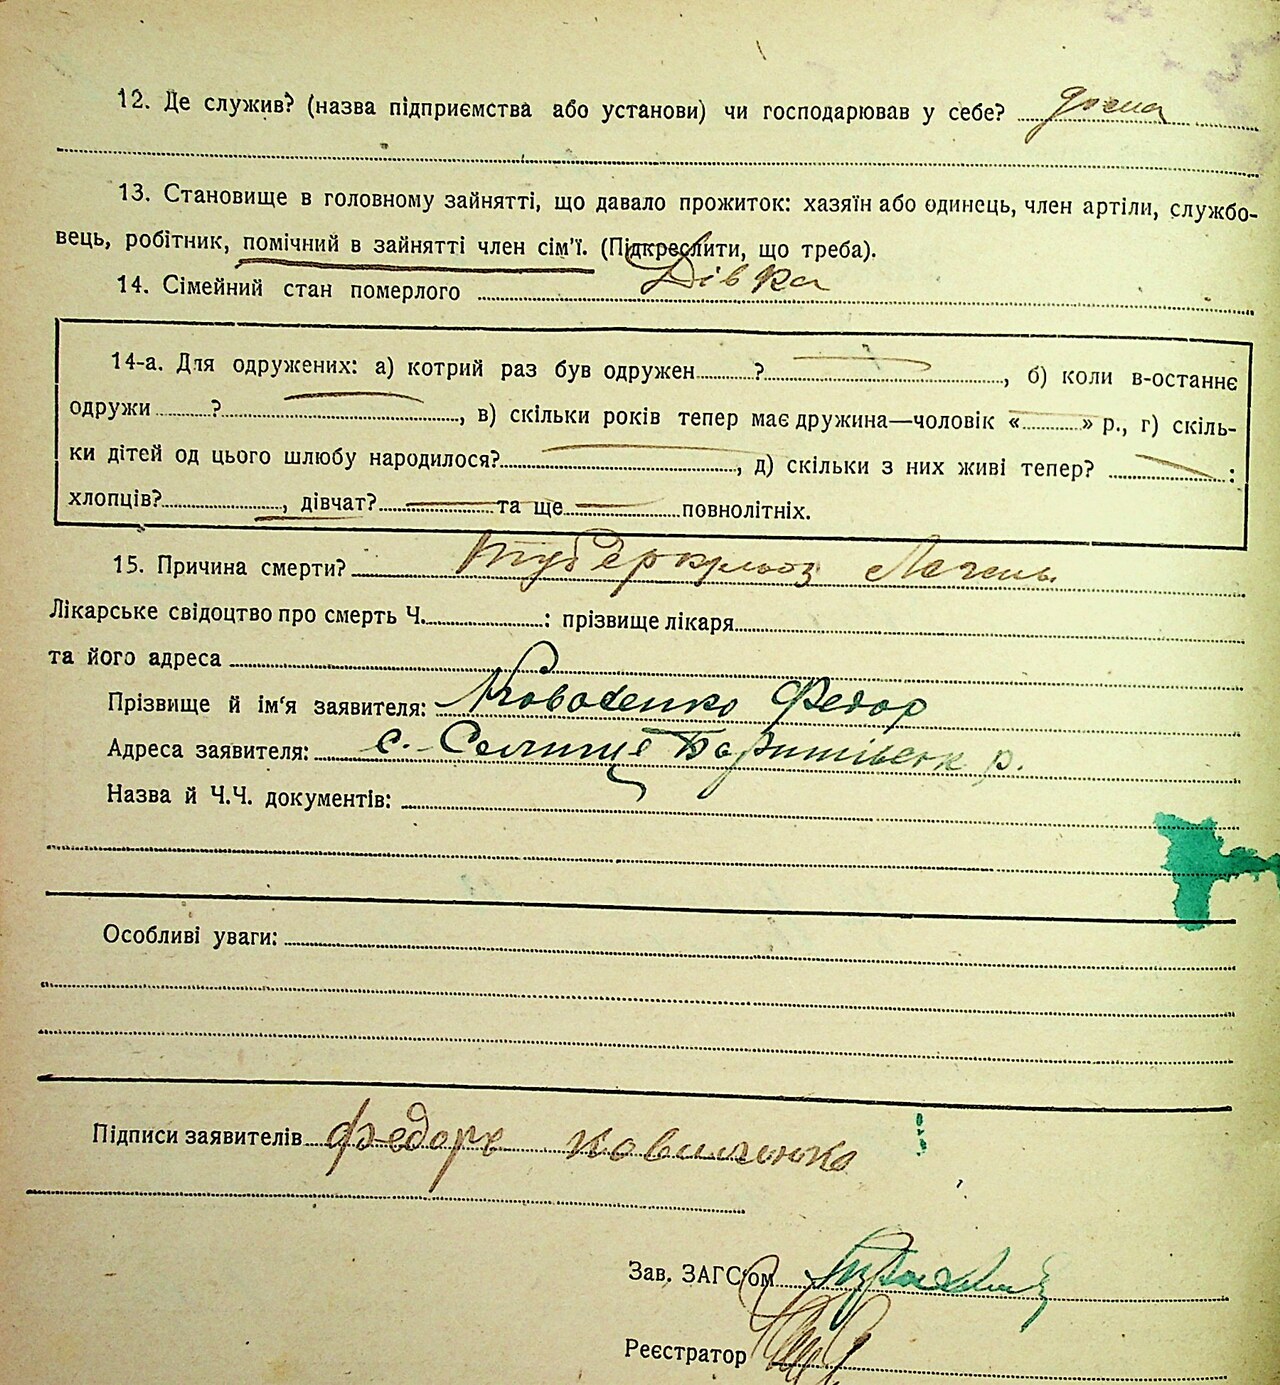 12. Де служив? (назва підприємства або установи) чи господарював у себе? дома
13. Становище в головному зайнятті, що давало прожиток: хазяїн або одинець, член артіли, службо-
вець, робітник, помічний в зайнятті член сім'ї. (Підкреслити, що треба).
14. Сімейний стан померлого Дівка
14-а. Для одружених: а) котрий раз був одружен ?, б) коли в-останнє
одружи ?, в) скільки років тепер має дружина—чоловік « » р., г) скіль-
ки дітей од цього шлюбу народилося?, д) скільки з них живі тепер? :
хлопців?, дівчат? та ще повнолітніх.
15. Причина смерти? туберкульоз Легень
Лікарське свідоцтво про смерть Ч. : прізвище лікаря
та його адреса
Прізвище й ім'я заявителя: Федор
Адреса заявителя: с. р.
Назва й Ч.Ч. документів:
Особливі уваги:
Підписи заявителів Федор
Зав. ЗАГС'ом
Реєстратор